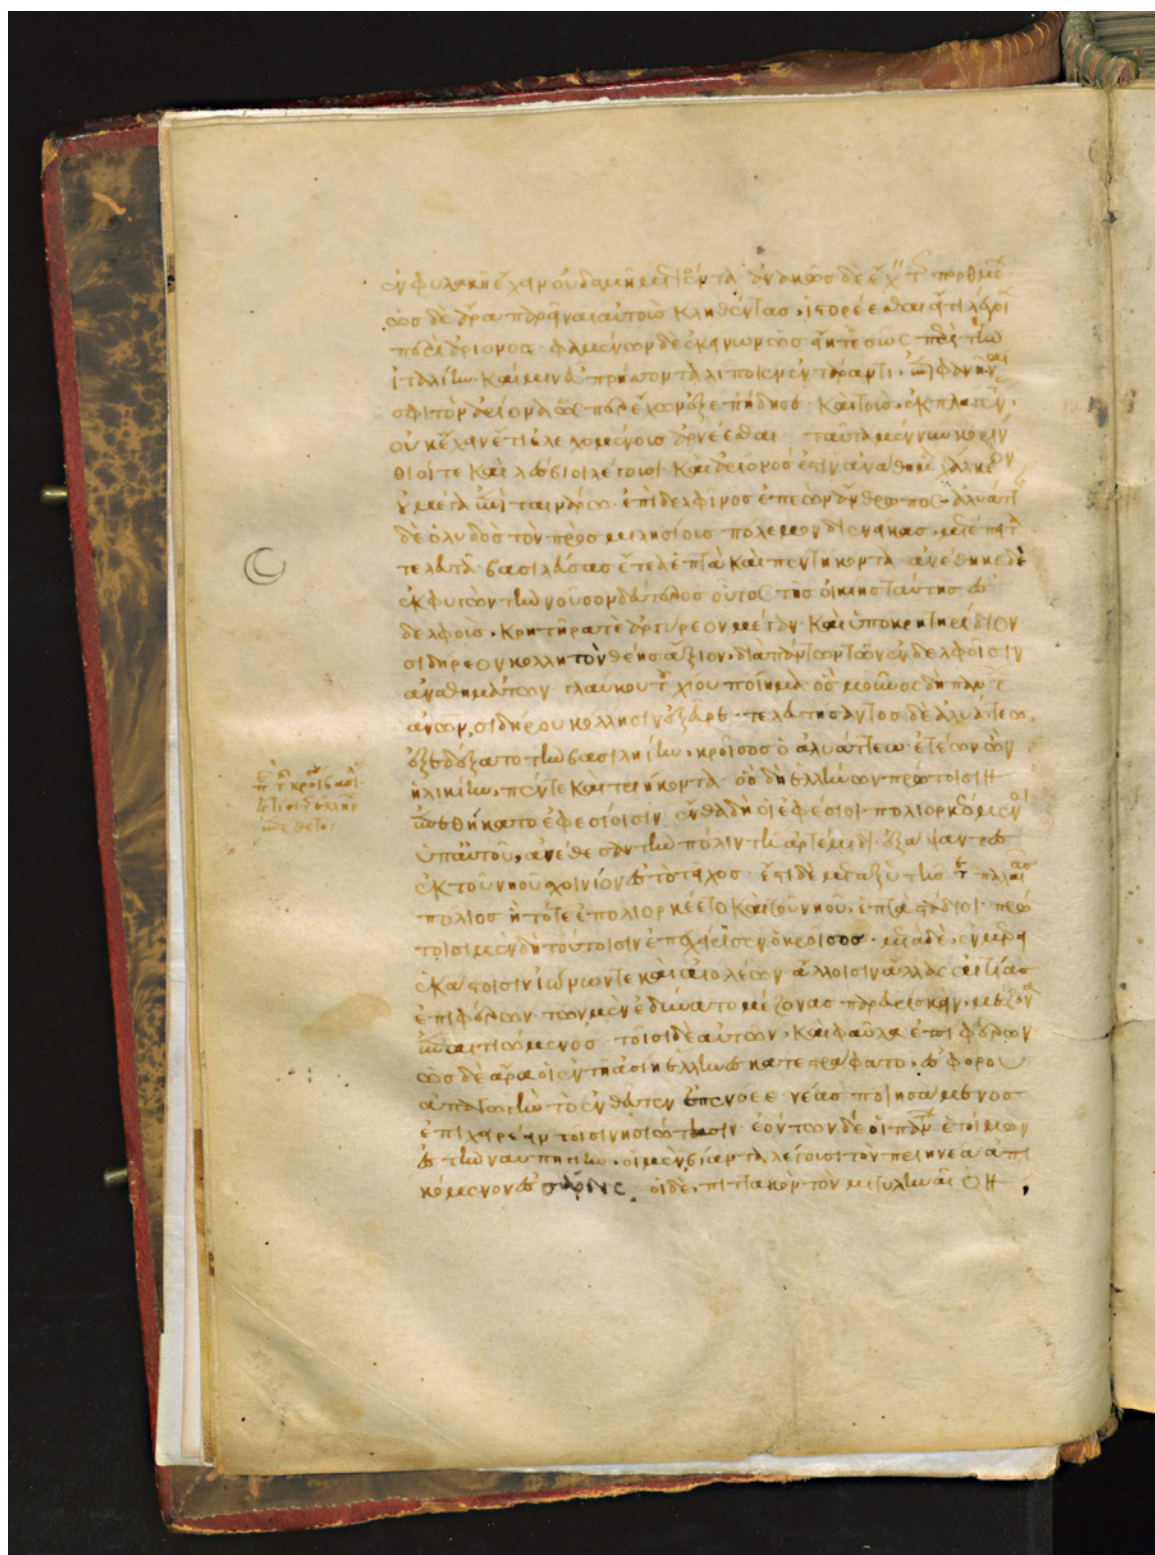 ἐν φυλακῇ ἔχειν οὐδαμῇ μετιέντα· ἀνακῶς δὲ ἔχειν τῶν πορθμέων
ὡς δὲ ἄρα παρεῖναι αὐτοὺς κληθέντας, ἱστορέεσθαι εἴ τι λέγοιεν
περὶ ἀρίονος. φαμένων δὲ ἐκείνων ὡς εἴη τε σῶς περὶ τὴν
ἰταλίην· καί μιν εὖ πρήσσοντα λίποιεν ἐν τάραντι, ἐπιφανῆναί
σφι τὸν ἀρίονα ὥσπερ ἔχων ἐξεπήδησε· καὶ τοὺς ἐκπλαγέντας,
οὐκ ἔχειν ἔτι ἐλεγχομένους ἀρνέεσθαι· ταῦτα μέν νυν κορίν
θιοί τε καὶ λέσβιοι λέγουσι· καὶ ἀρίονός ἐστιν ἀνάθημα χάλκεον
οὐ μέγα ἐπὶ ταινάρῳ· ἐπὶ δελφῖνος ἐπεὼν ἄνθρωπος. ἀλυάττης
δὲ ὁ λυδὸς τὸν πρὸς μιλησίους πόλεμον διενείκας, μετέπειτα
τελευτᾷ βασιλεύσας ἔτεα ἑπτὰ καὶ πεντήκοντα· ἀνέθηκε δὲ
ἐκφυγὼν τὴν νοῦσον δεύτερος οὗτος τῆς οἰκίης ταύτης ἐς
δελφοὺς, κρητῆρά τε ἀργύρεον μέγαν· καὶ ὑποκρητηρίδιον
σιδήρεον κολλητὸν θέης ἄξιον, διὰ πάντων τῶν ἐν δελφοῖσιν
ἀναθημάτων· γλαύκου τοῦ χίου ποίημα· ὃς μοῦνος δὴ πάντων
ἀνων, σιδήρου κόλλησιν ἐξεῦρε· τελευτήσαντος δὲ ἀλυάττεω,
ἐξεδέξατο τὴν βασιληίην, κροῖσος ὁ ἀλυάττεω· ἐτέων ἐὼν
ἡλικίην, πέντε καὶ τριήκοντα· ὃς δὴ ἑλλήνων πρώτοισι
ἐπεθήκατο ἐφεσίοισιν· ἔνθα δὴ οἱ ἐφέσιοι πολιορκεόμενοι
ὑπ' αὐτοῦ, ἀνέθεσαν τὴν πόλιν τῇ ἀρτέμιδι· ἐξάψαντες
ἐκ τοῦ νηοῦ σχοινίον ἐς τὸ τεῖχος· ἔστι δὲ μεταξὺ τῆς τε παλαιᾶς
πόλιος ἣ τότε ἐπολιορκέετο καὶ τοῦ νηοῦ, ἑπτὰ στάδιοι· πρώ
τοισι μὲν δὴ τούτοισιν ἐπεχείρησεν ὁ κροῖσος· μετὰ δὲ, ἐν μέρει
ἑκάστοισιν ἰώνων τε καὶ αἰολέων· ἄλλοισιν ἄλλας αἰτίας
ἐπιφέρων· τῶν μὲν ἐδύνατο μέζονας παρευρίσκειν, μέζονα
ἐπαιτιώμενος· τοῖσι δὲ αὐτῶν, καὶ φαῦλα ἐπιφέρων
ὡς δὲ ἄρα οἱ ἐν τῇ ἀσίῃ ἕλληνες κατεστράφατο, ἐς φόρου
ἀπαγωγὴν· τὸ ἐνθεῦτεν ἐπενόεε νέας ποιησάμενος
ἐπιχειρέειν τοῖσι νησιώτῃσιν· ἐόντων δέ οἱ πάντων ἑτοίμων
ἐς τὴν ναυπηγίην, οἱ μὲν, βίαντα λέγουσι τὸν πριηνέα ἀπι
κόμενον ἐς σάρδις. οἱ δὲ, πιττακὸν τὸν μιτυληναῖον,